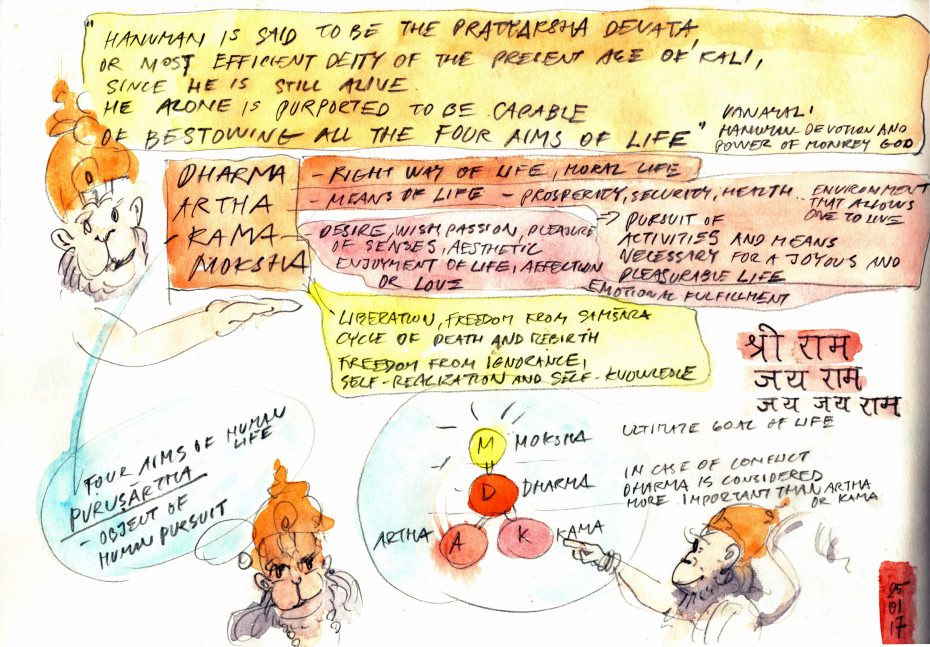 "HANUMAN IS SAID TO BE THE PRATYAKSHA DEVATA,
OR MOST EFFICIENT DEITY OF THE PRESENT AGE OF KALI,
SINCE HE IS STILL ALIVE.
HE ALONE IS PURPORTED TO BE CAPABLE
OF BESTOWING ALL THE FOUR AIMS OF LIFE"
VANAMALI
HANUMAN DEVOTION AND
POWER OF MONKEY GOD
DHARMA - RIGHT WAY OF LIFE, MORAL LIFE
ARTHA - MEANS OF LIFE - PROSPERITY, SECURITY, HEALTH
ENVIRONMENT
THAT ALLOWS
ONE TO LIVE
→ PURSUIT OF
ACTIVITIES AND MEANS
NECESSARY FOR A JOYOUS AND
PLEASURABLE LIFE
- KAMA -
DESIRE, WISH, PASSION, PLEASURE
OF SENSES, AESTHETIC
ENJOYMENT OF LIFE, AFFECTION
OR LOVE
EMOTIONAL FULFILLMENT
MOKSHA
LIBERATION, FREEDOM FROM SAMSARA
CYCLE OF DEATH AND REBIRTH
FREEDOM FROM IGNORANCE,
SELF-REALIZATION AND SELF-KNOWLEDGE
श्री राम
जय राम
जय जय राम
FOUR AIMS OF HUMAN
LIFE
PURUṢĀRTHA
- OBJECT OF
HUMAN PURSUIT
M MOKSHA
ULTIMATE GOAL OF LIFE
D DHARMA
IN CASE OF CONFLICT
DHARMA IS CONSIDERED
MORE IMPORTANT THAN ARTHA
OR KAMA
ARTHA A K KAMA
25
01
17